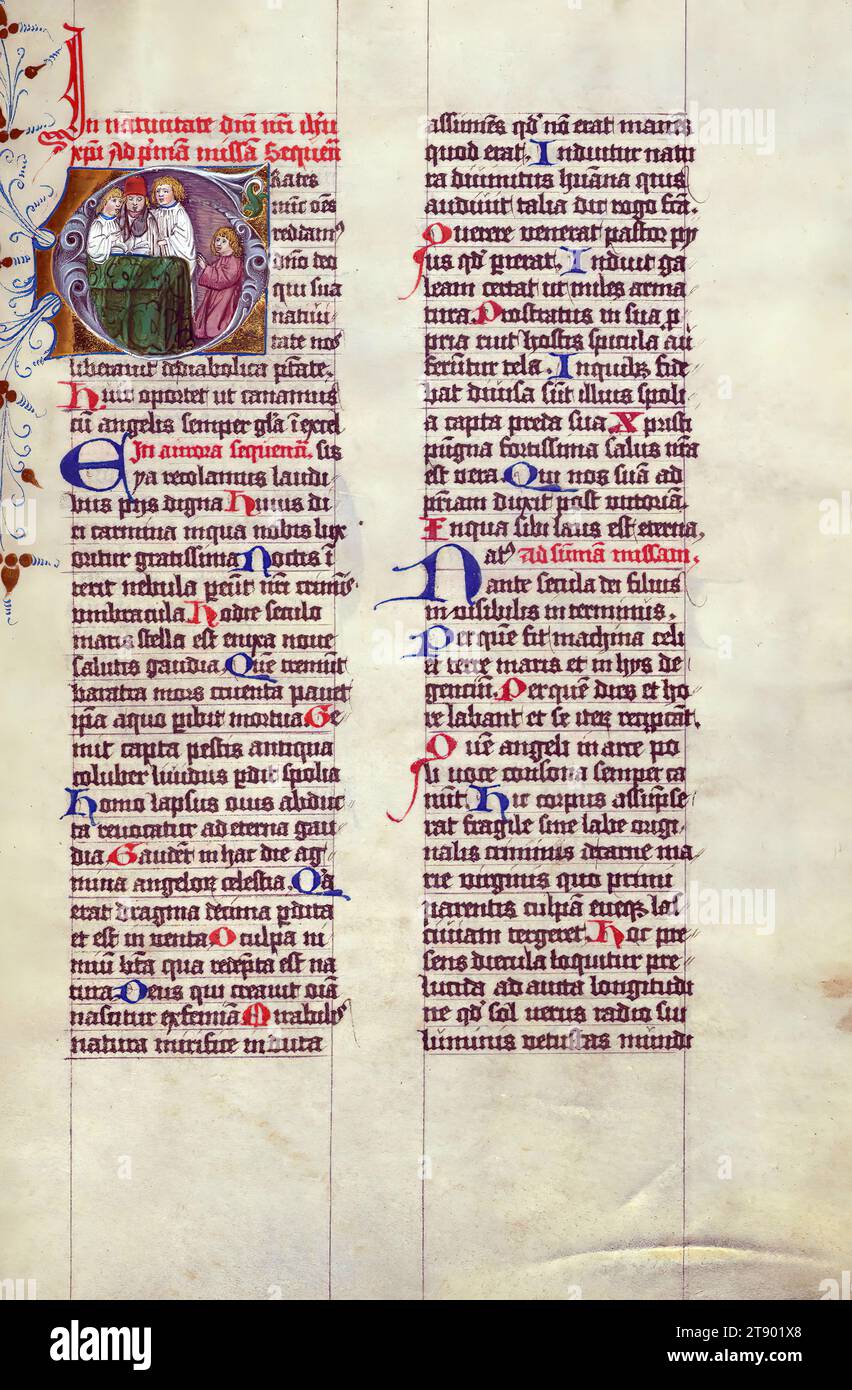 In natiuitate dni nri ihu
xpi Ad pmam missam Sequen
Grates
nunc oes
reddam
dno deo
qui sua
natiui
tate nos
liberauit dyabolica ptate.
Huic oportet ut canamus
cu angelis semper gla i excel
In aurora sequena. sis
Eya recolamus laudi
bus pijs digna Huius di
ei carmina in qua nobis lux
oritur gratissima Noctis i
terit nebula pereut nri criminis
umbracula Hodie seculo
maris stella est enixa noue
salutis gaudia Que tremut
baratra mors cruenta pauet
ipa a quo peribit mortua Ge
mit capta pestis antiqua
coluber liuidus perdit spolia
Homo lapsus ouis abduc
ta reuocatur ad eterna gau
dia Gaudet in hac die ag
mina angelorum celestia. Qa
erat dragma decima perdita
et est in uenta O culpa ni
miu bta qua redepta est na
tura Deus qui creauit oia
nascitur ex femia Mirabilis
natura mirifice induta
assumes qd no erat manes
quod erat. Induitur natu
ra diuinitus huana quis
audiuit talia dic rogo fca.
Querere venerat pastor py
us qd perierat. Induit ga
leam certat ut miles arma
tura. Prostratus in sua p
pria ruit hostis spicula au
feruntur tela. In quibus fide
bat diuisa sut illius spoli
a capta preda sua Xpristi
pugna fortissima salus nra
est vera. Qui nos sua ad
priam duxit post uictoria.
In qua sibi laus est eterna,
Nat Ad suma missam.
ante secula dei filius
in uisibilis in terminus.
Per que fit machina celi
et terre maris et in hys de
genciu. Per que dies et ho
re labant et se iteru recipicat.
Que angeli in arce po
li uoce consona semper ca
nut. Hic corpus assupse
rat fragile sine labe origi
nalis criminis de carne ma
rie virginis quo primi
parentis culpa eueq las
ciuiam tergeret. Hoc pre
sens diecula loquitur pre
lucida ad aucta longitudi
ne qd sol verus radio sui
luminis vetustas mundi
alamy
Image ID: 2T901X8
www.alamy.com